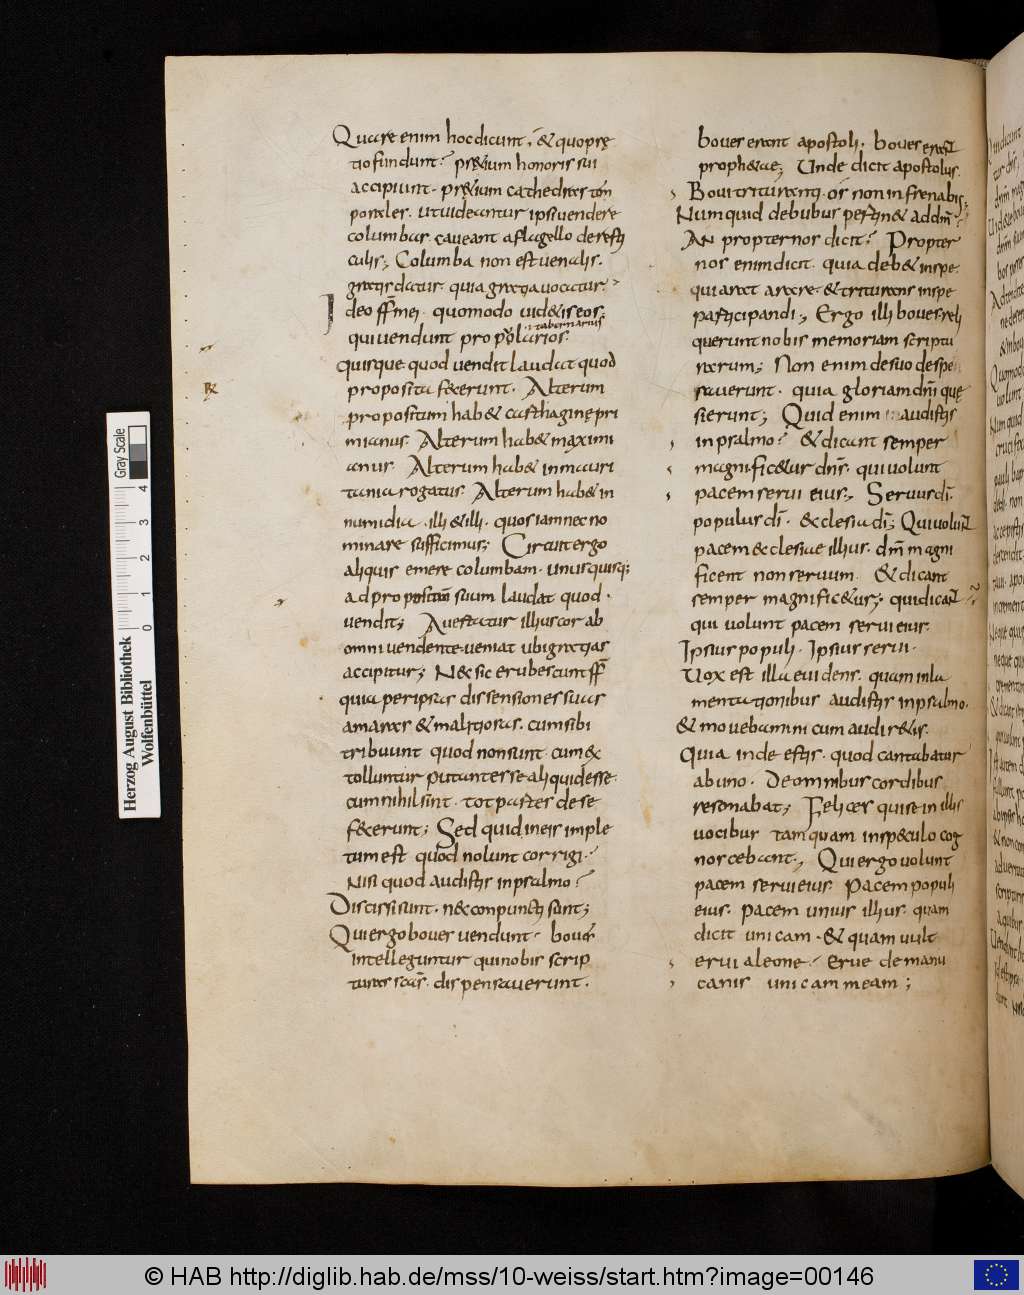 Quare enim hoc dicunt, & quo prę
tio fundunt? prętium honoris sui
accipiunt. prętium cathedras tẽm
porales. ut uideantur ipsi uendere
columbas. caueant a flagello de resti
culis; Columba non est uenalis.
gratis datur. quia gratia uocatur.
Ideo ff̄ mei. quomodo uid&is eos.
qui uendunt propolarios.
i tabernarius
quisque quod uendit laudat quod
proposita fecerunt. Alterum
propositum hab& carthagine pri
mianus. Alterum hab& maximi
anus. Alterum hab& in mauri
tania rogatus. Alterum hab& in
numidia. illi & illi. quos iam nec no
minare sufficimus; Circuit ergo
aliquis emere columbam. unusquisq;
ad propositum suum laudat quod.
uendit; Auertatur illius cor ab
omni uendente. ueniat ubi gratias
accipitur; Nec sic erubescunt ff̄
quia per ipsas dissensiones suas
amaras & malitiosas. cum sibi
tribuunt quod non sunt. cum &
tolluntur putantes se aliquid esse
cum nihil sint. tot partes de se
fecerunt; Sed quid in eis imple
tum est quod nolunt corrigi.
nisi quod audistis in psalmo?
Discissi sunt. nec conpuncti sunt;
Qui ergo boues uendunt. boues
intelleguntur qui nobis scrip
turas scās. dispensauerunt.
boues erant apostoli. boues erant
proph&ae; Unde dicit apostolus.
Boui trituranti. os non infrenabis;
Numquid de bubus pertin& ad dm̄?
An propter nos dicit? Propter
nos enim dicit. quia deb& in spe.
qui arat arare. & triturans in spe
participandi; Ergo illi boues reli
querunt nobis memoriam scriptu
rarum; Non enim de suo dispen
sauerunt. quia gloriam dm̄i quę
sierunt; Quid enim audistis
in psalmo? & dicant semper
magnific&ur dn̄s. qui uolunt
pacem serui eius; Seruus dī.
populus dī. ecclesia dī; Qui uolunt
pacem ecclesiae illius. dm̄ magni
ficent non seruum. & dicant
semper magnific&ur; qui dicant
qui uolunt pacem serui eius.
Ipsius populi. Ipsius serui.
Uox est illa euidens. quam in la
mentationibus audistis in psalmo.
& mouebamini cum audir&is.
Quia inde estis. quod cantabatur
ab uno. De omnibus cordibus
resonabat; Felices qui se in illis
uocibus tamquam in speculo cog
noscebant; Qui ergo uolunt
pacem serui eius. Pacem populi
eius. pacem unius illius. quam
dicit unicam. & quam uult
erui a leone. Erue de manu
canis unicam meam;
Herzog August Bibliothek
Wolfenbüttel
Gray Scale
0 1 2 3 4
© HAB http://diglib.hab.de/mss/10-weiss/start.htm?image=00146